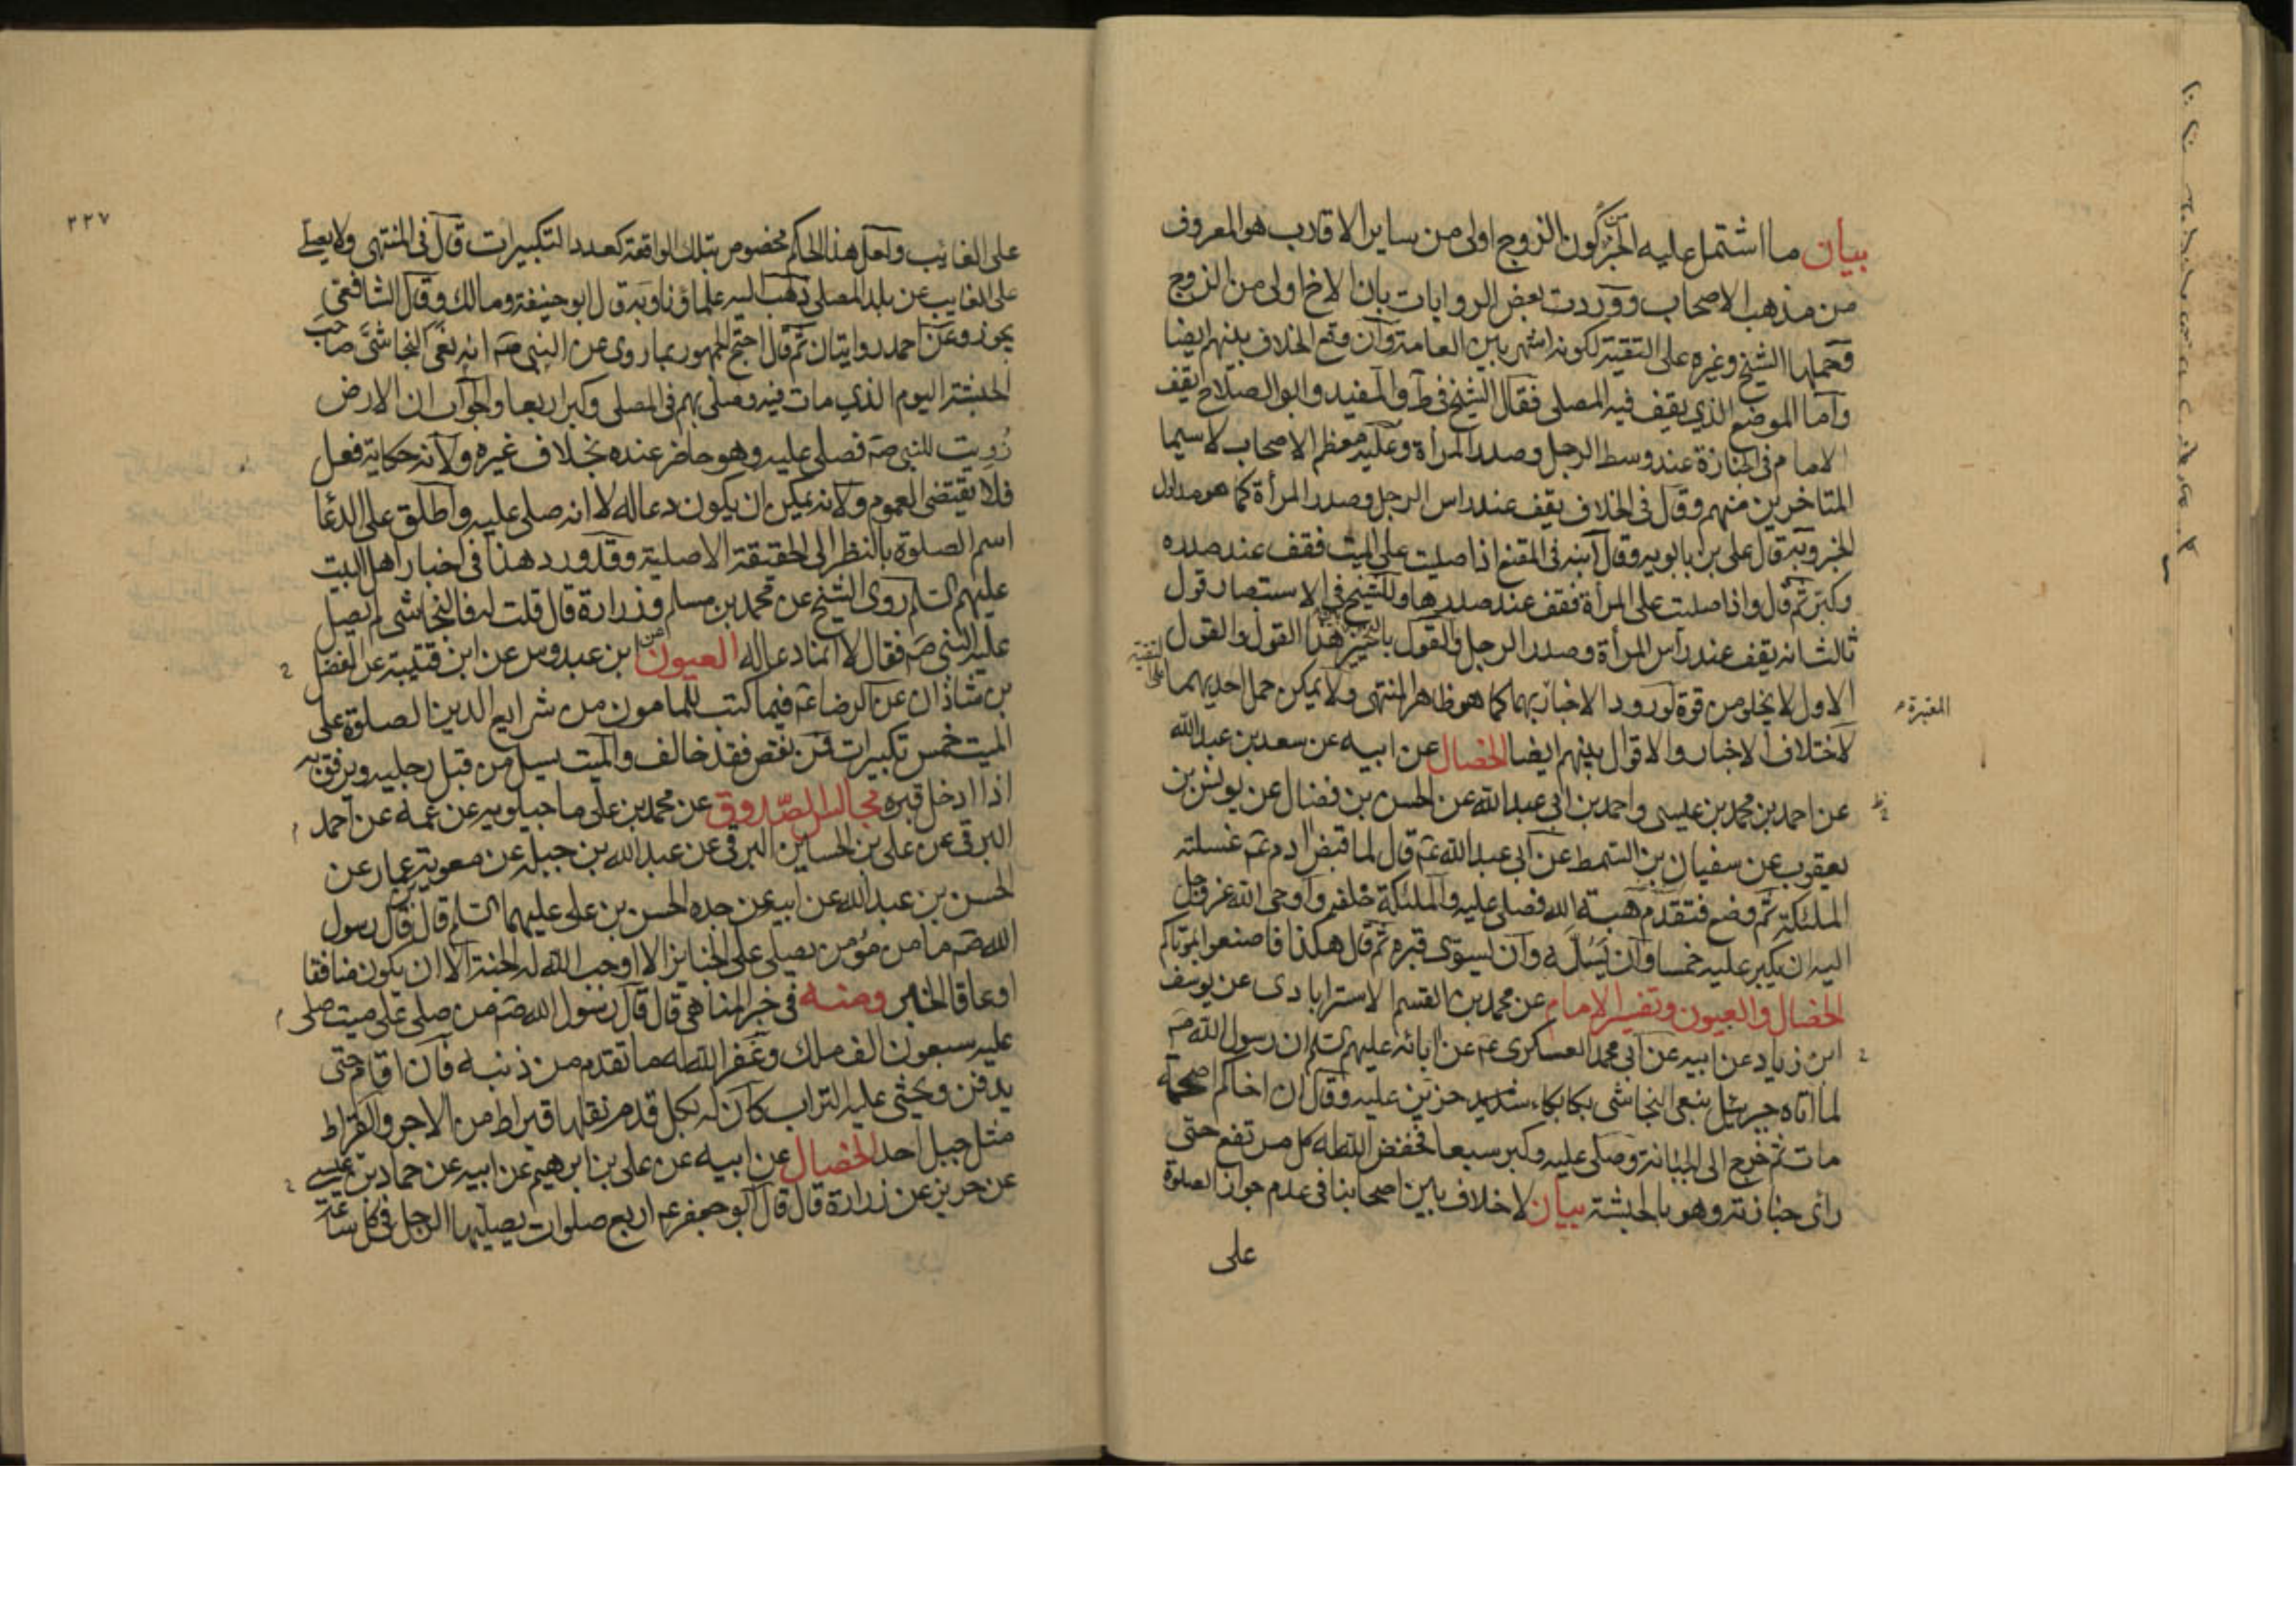 بيان ما اشتمل عليه الخبر من كون الزوج اولى من ساير الاقارب هو المعروف
من مذهب الاصحاب ووردت بعض الروايات بان الاخ اولى من الزوج
وحملها الشيخ وغيره على التقية لكونه اشهر بين العامة وان وقع الخلاف بينهم ايضا
واما الموضع الذي يقف فيه المصلى فقال الشيخ في ط والمفيد وابو الصلاح يقف
الامام في الجنازة عند وسط الرجل وصدر المرأة وعليه معظم الاصحاب لا سيما
المتاخرين منهم وقال في الخلاف يقف عند راس الرجل وصدر المرأة كما هو مدلول
الخبر وبه قال على بن بابويه وقال ابنه في المقنع اذا صليت على الميت فقف عند صدره
وكبر ثم قال واذا صليت على المرأة فقف عند صدرها وللشيخ في الاستبصار قول
ثالث انه يقف عند رأس المرأة وصدر الرجل والقول بالتخيير هذا القول والقول
الاول لا يخلو من قوة لورود الاخبار بهما كما هو ظاهر المنتهى ولا يمكن حمل احديهما على التقية
المغيرة
لاختلاف الاخبار والاقوال بينهم ايضا الخصال عن ابيه عن سعد بن عبد الله
عن احمد بن محمد بن عيسى واحمد بن ابى عبد الله عن الحسن بن فضال عن يونس بن
يعقوب عن سفيان بن السمط عن ابى عبد الله عم قال لما قبض ادم عم غسلته
الملئكة ثم وضع فتقدم هبة الله فصلى عليه والملئكة خلفه واوحى الله عز وجل
اليه ان يكبر عليه خمسا وان يسله وان يسوى قبره ثم قال هكذا فاصنعوا بموتاكم
الخصال والعيون وتفسير الامام عن محمد بن القسم الاسترابادى عن يوسف
ابن زياد عن ابيه عن ابى محمد العسكرى عم عن ابائه عليهم السلم ان رسول الله صم
لما اتاه جبرئيل بنعى النجاشى بكا بكاء شديد حزين عليه وقال ان اخاكم اصحمة
مات ثم خرج الى الجبانة وصلى عليه وكبر سبعا فخفض الله له كل مرتفع حتى
رأى جنازته وهو بالحبشة بيان لا خلاف بين اصحابنا في عدم جواز الصلوة
على
٢٢٧
على الغايب ولعل هذا الحكم مخصوص بتلك الواقعة كعدد التكبيرات قال في المنتهى ولا يصلى
على الغايب عن بلد المصلى ذهب اليه علماؤنا وبه قال ابو حنيفة ومالك وقال الشافعى
يجوز وعن احمد روايتان ثم قال احتج الجمهور بما روى عن النبى صم انه نعى النجاشى صاحب
الحبشة اليوم الذي مات فيه وصلى بهم في المصلى وكبر اربعا والجواب ان الارض
زُويت للنبى صم فصلى عليه وهو حاضر عنده بخلاف غيره ولانه حكاية فعل
فلا يقتضى العموم ولانه يمكن ان يكون دعا له لا انه صلى عليه واطلق على الدعا
اسم الصلوة بالنظر الى الحقيقة الاصلية وقد ورد هذا في اخبار اهل البيت
عليهم السلم روى الشيخ عن محمد بن مسلم وزرارة قال قلت له فالنجاشى لم يصل
عليه النبى صم فقال لا انما دعا له العيون عن ابن عبدوس عن ابن قتيبة عن الفضل
بن شاذان عن الرضا عم فيما كتب للمامون من شرايع الدين الصلوة على
الميت خمس تكبيرات فمن نقص فقد خالف والميت يسل من قبل رجليه ويرفق به
اذا ادخل قبره مجالس الصدوق عن محمد بن على ماجيلويه عن عمه عن احمد
البرقى عن على بن الحسين البرقى عن عبد الله بن جبلة عن معوية بن عمار عن
الحسن بن عبد الله عن ابيه عن جده الحسن بن على عليهما السلم قال قال رسول
الله صم ما من مؤمن يصلى على الجنايز الا اوجب الله له الجنة الا ان يكون منافقا
او عاقا الخبر ومنه في خبر المناهى قال قال رسول الله صم من صلى على ميت صلى
عليه سبعون الف ملك وغفر الله له ما تقدم من ذنبه فان اقام حتى
يدفن ويحثى عليه التراب كان له بكل قدم نقلها قيراط من الاجر والقيراط
مثل جبل احد الخصال عن ابيه عن على بن ابرهيم عن ابيه عن حماد بن عيسى
عن حريز عن زرارة قال قال ابو جعفر عم اربع صلوات يصليها الرجل في كل ساعة